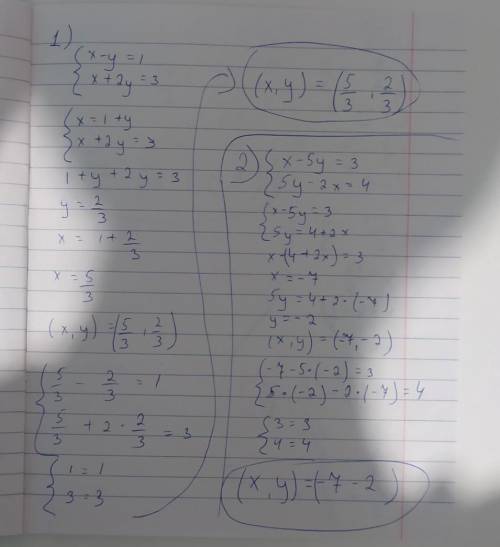 1)
{ x-y = 1
{ x+2y = 3
{ x = 1+y
{ x+2y = 3
1+y+2y = 3
y = 2/3
x = 1+2/3
x = 5/3
(x,y) = (5/3, 2/3)
{ 5/3 - 2/3 = 1
{ 5/3 + 2·2/3 = 3
{ 1 = 1
{ 3 = 3
(x,y) = (5/3, 2/3)
2)
{ x-5y = 3
{ 5y-2x = 4
{ x-5y = 3
{ 5y = 4+2x
x-(4+2x) = 3
x = -7
5y = 4+2·(-7)
y = -2
(x,y) = (-7,-2)
{ -7-5·(-2) = 3
{ 5·(-2)-2·(-7) = 4
{ 3 = 3
{ 4 = 4
(x,y) = (-7 -2)